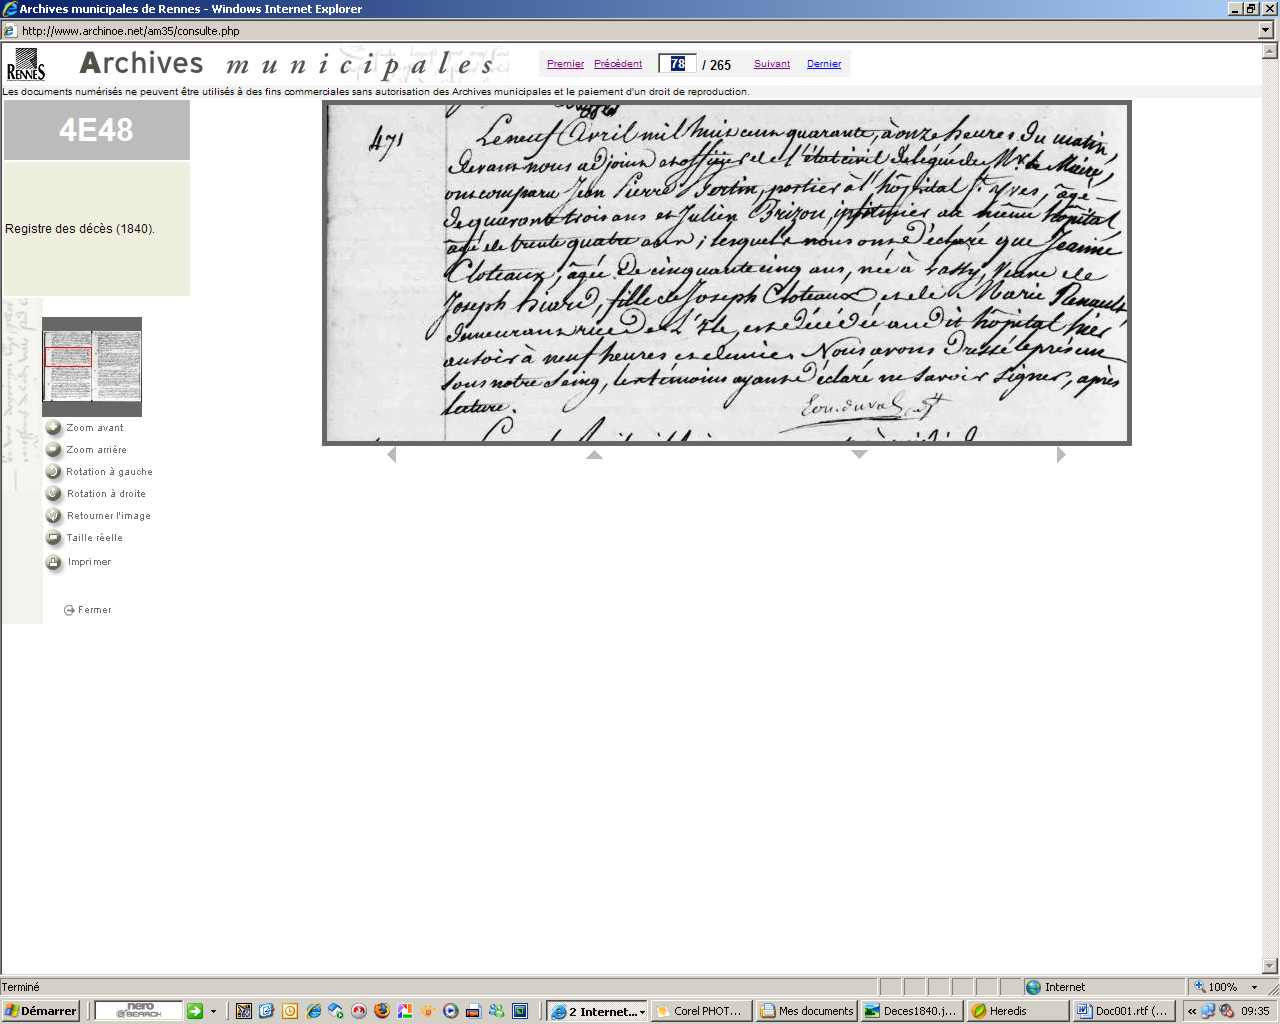 Archives municipales de Rennes - Windows Internet Explorer
http://www.archinoe.net/am35/consulte.php
RENNES
Archives municipales
Premier Précédent 78 / 265 Suivant Dernier
Les documents numérisés ne peuvent être utilisés à des fins commerciales sans autorisation des Archives municipales et le paiement d'un droit de reproduction.
4E48
Registre des décès (1840).
471
Le neuf Avril mil huit cent quarante, à onze heures du matin,
devant nous adjoint et officier de l'état civil délégué de Mr. le Maire,
ont comparu Jean Pierre Bertin, portier à l'hôpital St. Yves, âgé
de quarante trois ans et Julien Brizou, infirmier au même hôpital
âgé de trente quatre ans; lesquels nous ont déclaré que Jeanne
Cloteaux, âgée de cinquante cinq ans, née à , Veuve de
Joseph huard, fille de Joseph Cloteaux et de Marie Renault
demeurant rue de l'Ile, est décédée audit hôpital hier
au soir à neuf heures et demie. Nous avons dressé le présent
sous notre seing, les témoins ayant déclaré ne savoir signer, après
lecture.
Zoom avant
Zoom arrière
Rotation à gauche
Rotation à droite
Retourner l'image
Taille réelle
Imprimer
Fermer
Terminé
Internet
100%
Démarrer
nero
SEARCH
2 Internet...
Corel PHOT...
Mes documents
Deces1840.j...
Heredis
Doc001.rtf (...
«
09:35